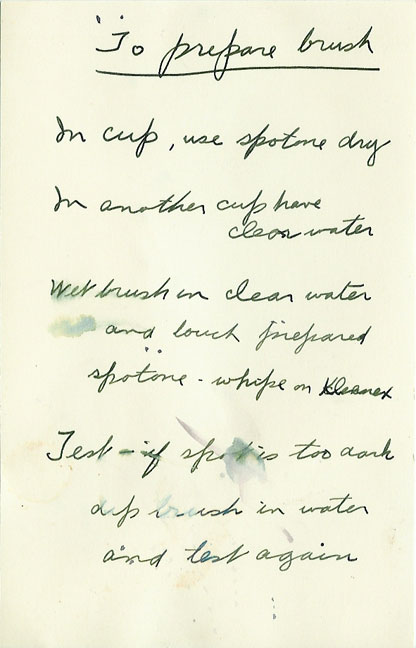 To prepare brush
In cup, use spotone dry
In another cup have
clean water
Wet brush in clear water
and touch prepared
spotone - whipe on Kleenex
Test - if spot is too dark
dip brush in water
and test again